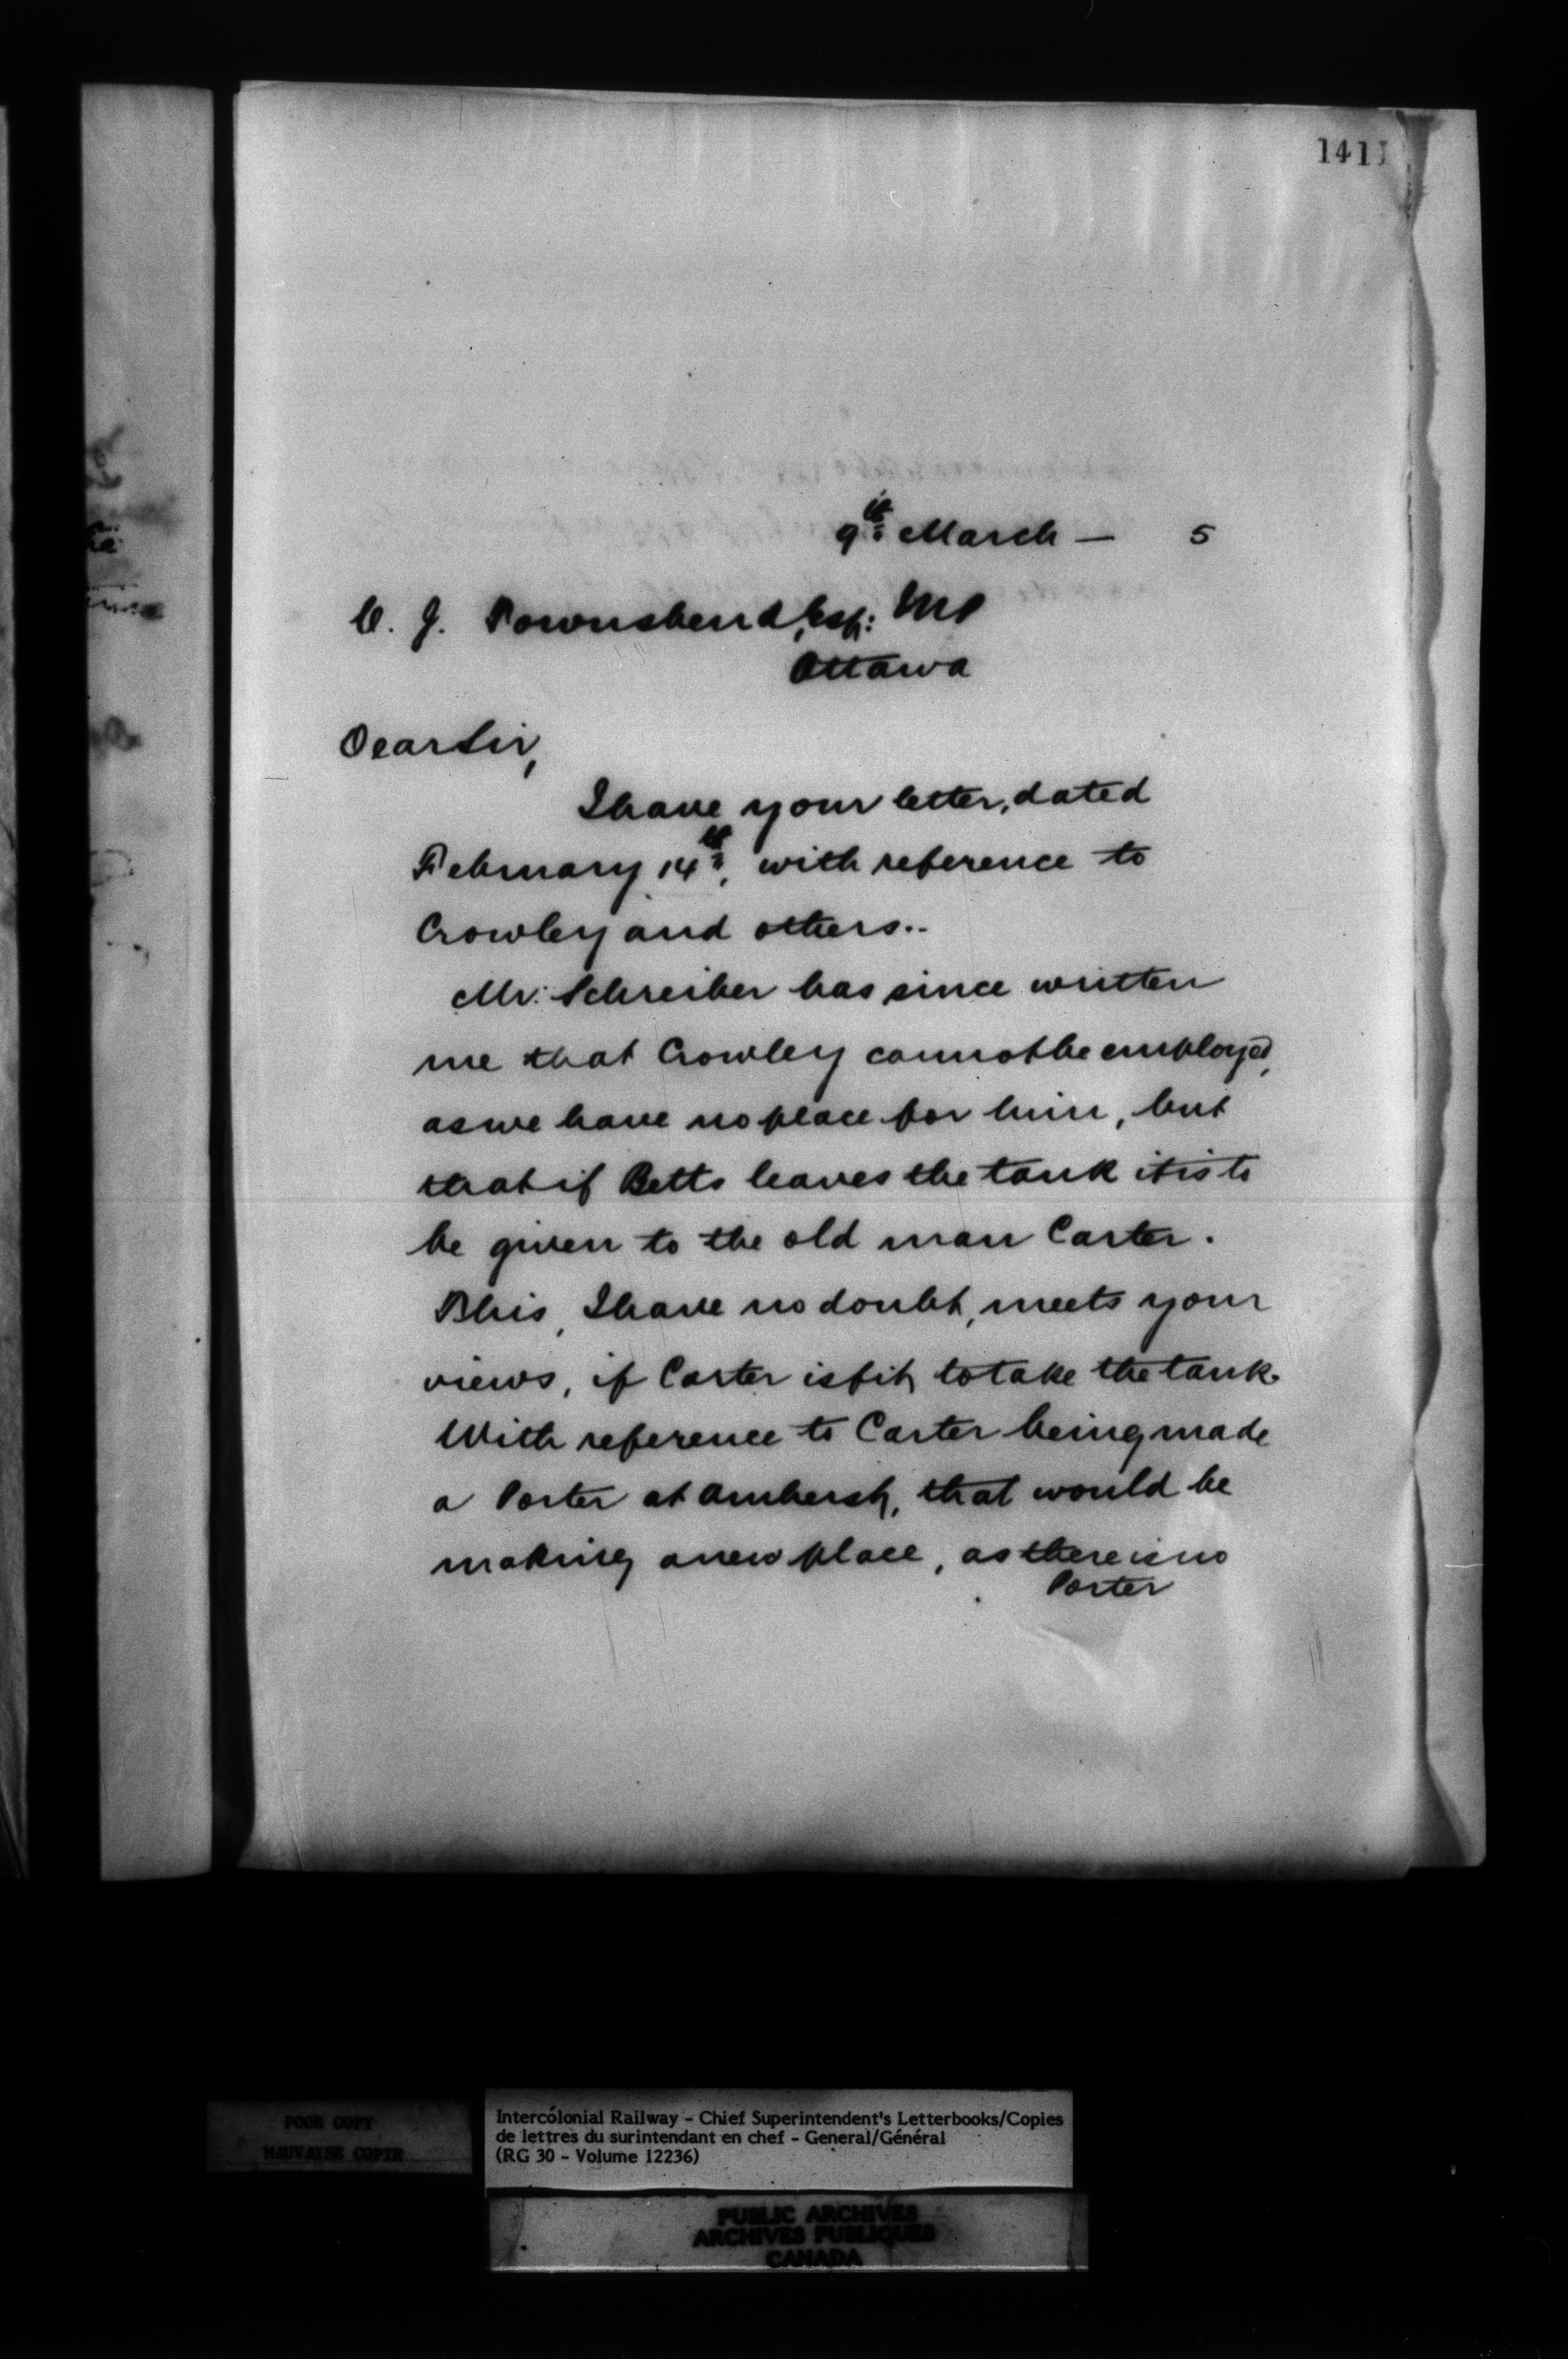 1411
9th March — 5
C. J. Townshend, Esq: MP
Ottawa
Dear Sir,
I have your letter, dated
February 14th, with reference to
Crowley and others..
Mr: Schreiber has since written
me that Crowley cannot be employed,
as we have no place for him, but
that if Betts leaves the tank it is to
be given to the old man Carter.
This, I have no doubt, meets your
views, if Carter is fit, to take the tank.
With reference to Carter being made
a Porter at Amherst, that would be
making a new place, as there is no
Porter
POOR COPY
MAUVAISE COPIE
Intercolonial Railway - Chief Superintendent's Letterbooks/Copies
de lettres du surintendant en chef - General/Général
(RG 30 - Volume 12236)
PUBLIC ARCHIVES
ARCHIVES PUBLIQUES
CANADA